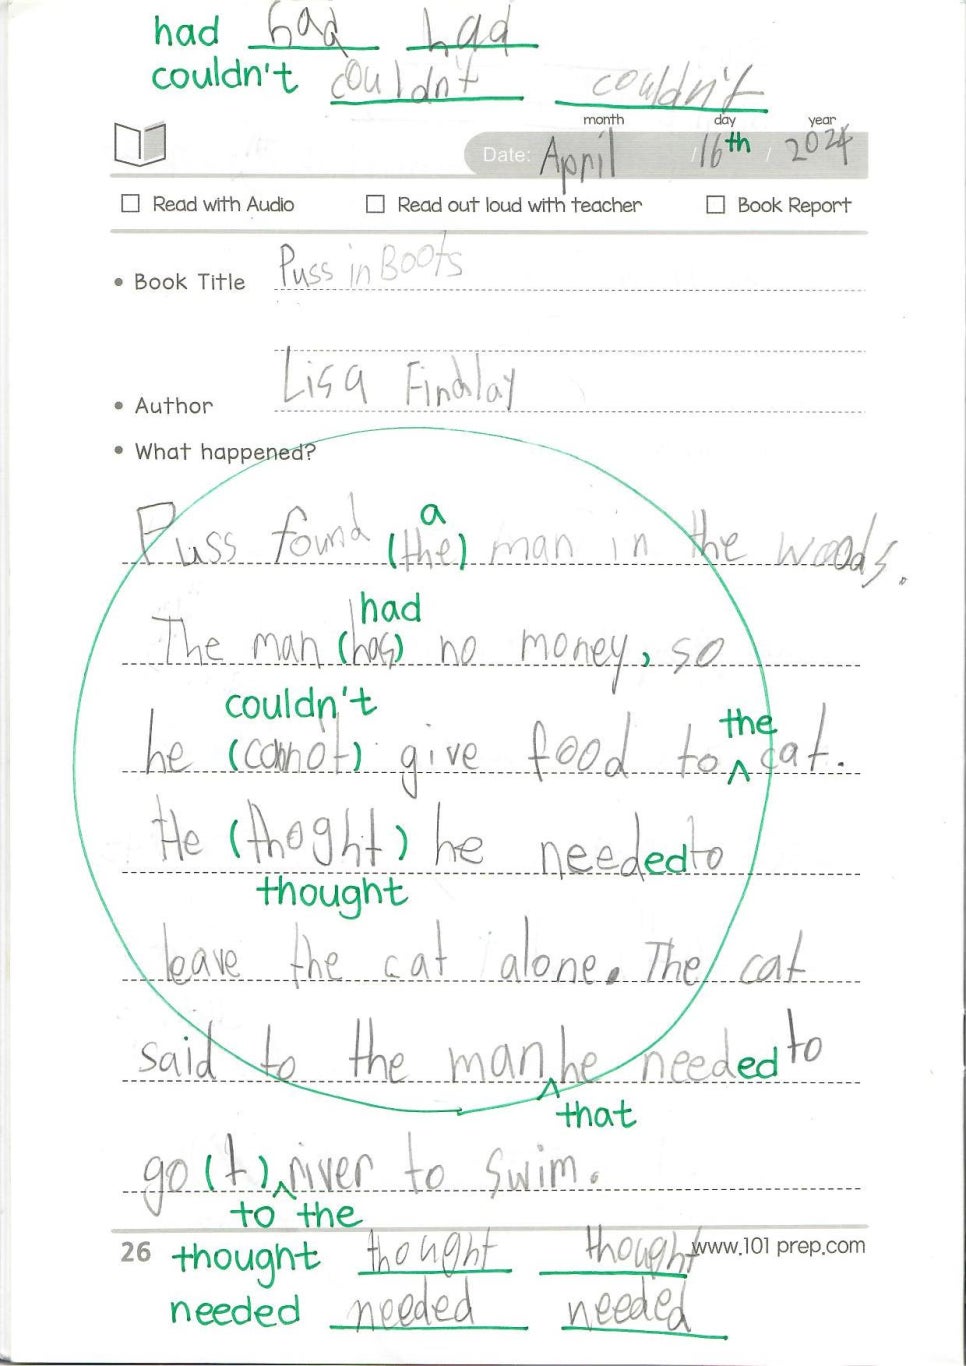 had had had
couldn't couldn't couldn't
month day year
Date: April / 16th / 2024
Read with Audio Read out loud with teacher Book Report
• Book Title Puss in Boots
• Author Lisa Findlay
• What happened?
a
Puss found (the) man in the woods.
had
The man (has) no money, so
couldn't the
he (cannot) give food to ^ cat.
He (thoght) he needed to
thought
leave the cat alone. The cat
said to the man ^ he needed to
that
go (t) ^ river to swim.
to the
26 thought thought thought www.101prep.com
needed needed needed